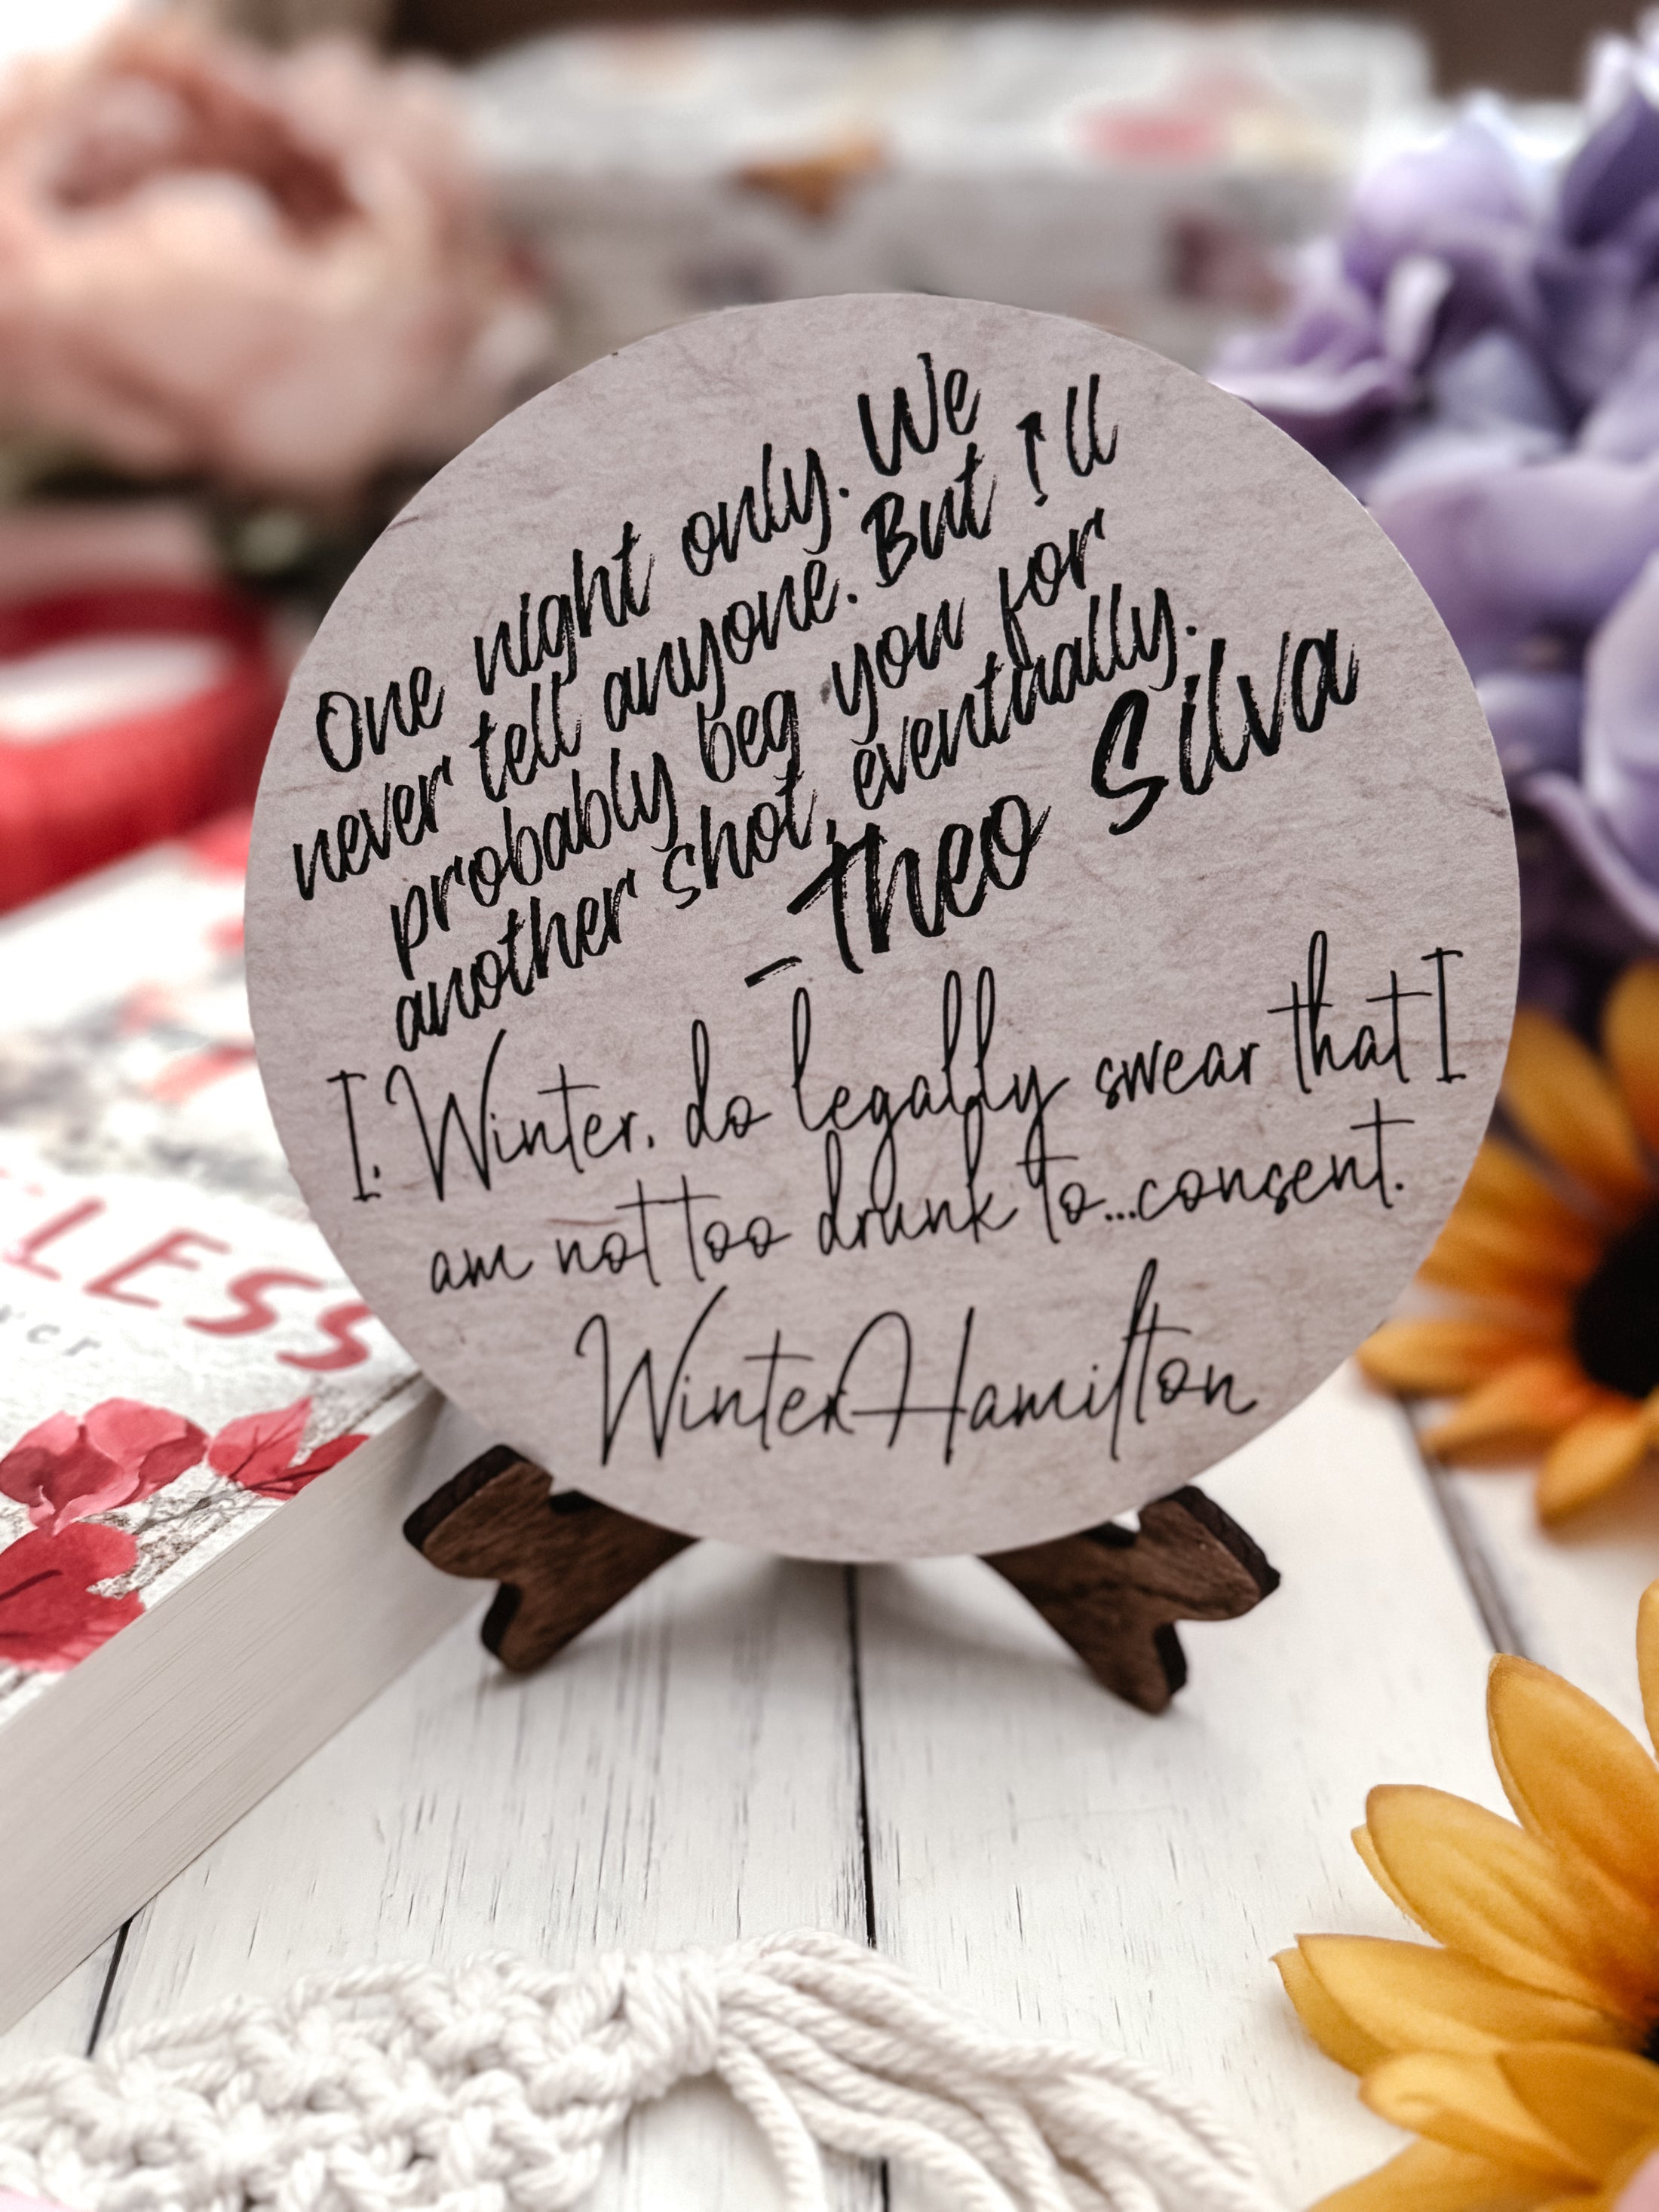 One night only. We
never tell anyone. But I'll
probably beg you for
another shot, eventually.
- Theo Silva
I, Winter, do legally swear that I
am not too drunk to...consent.
Winter Hamilton
LESS